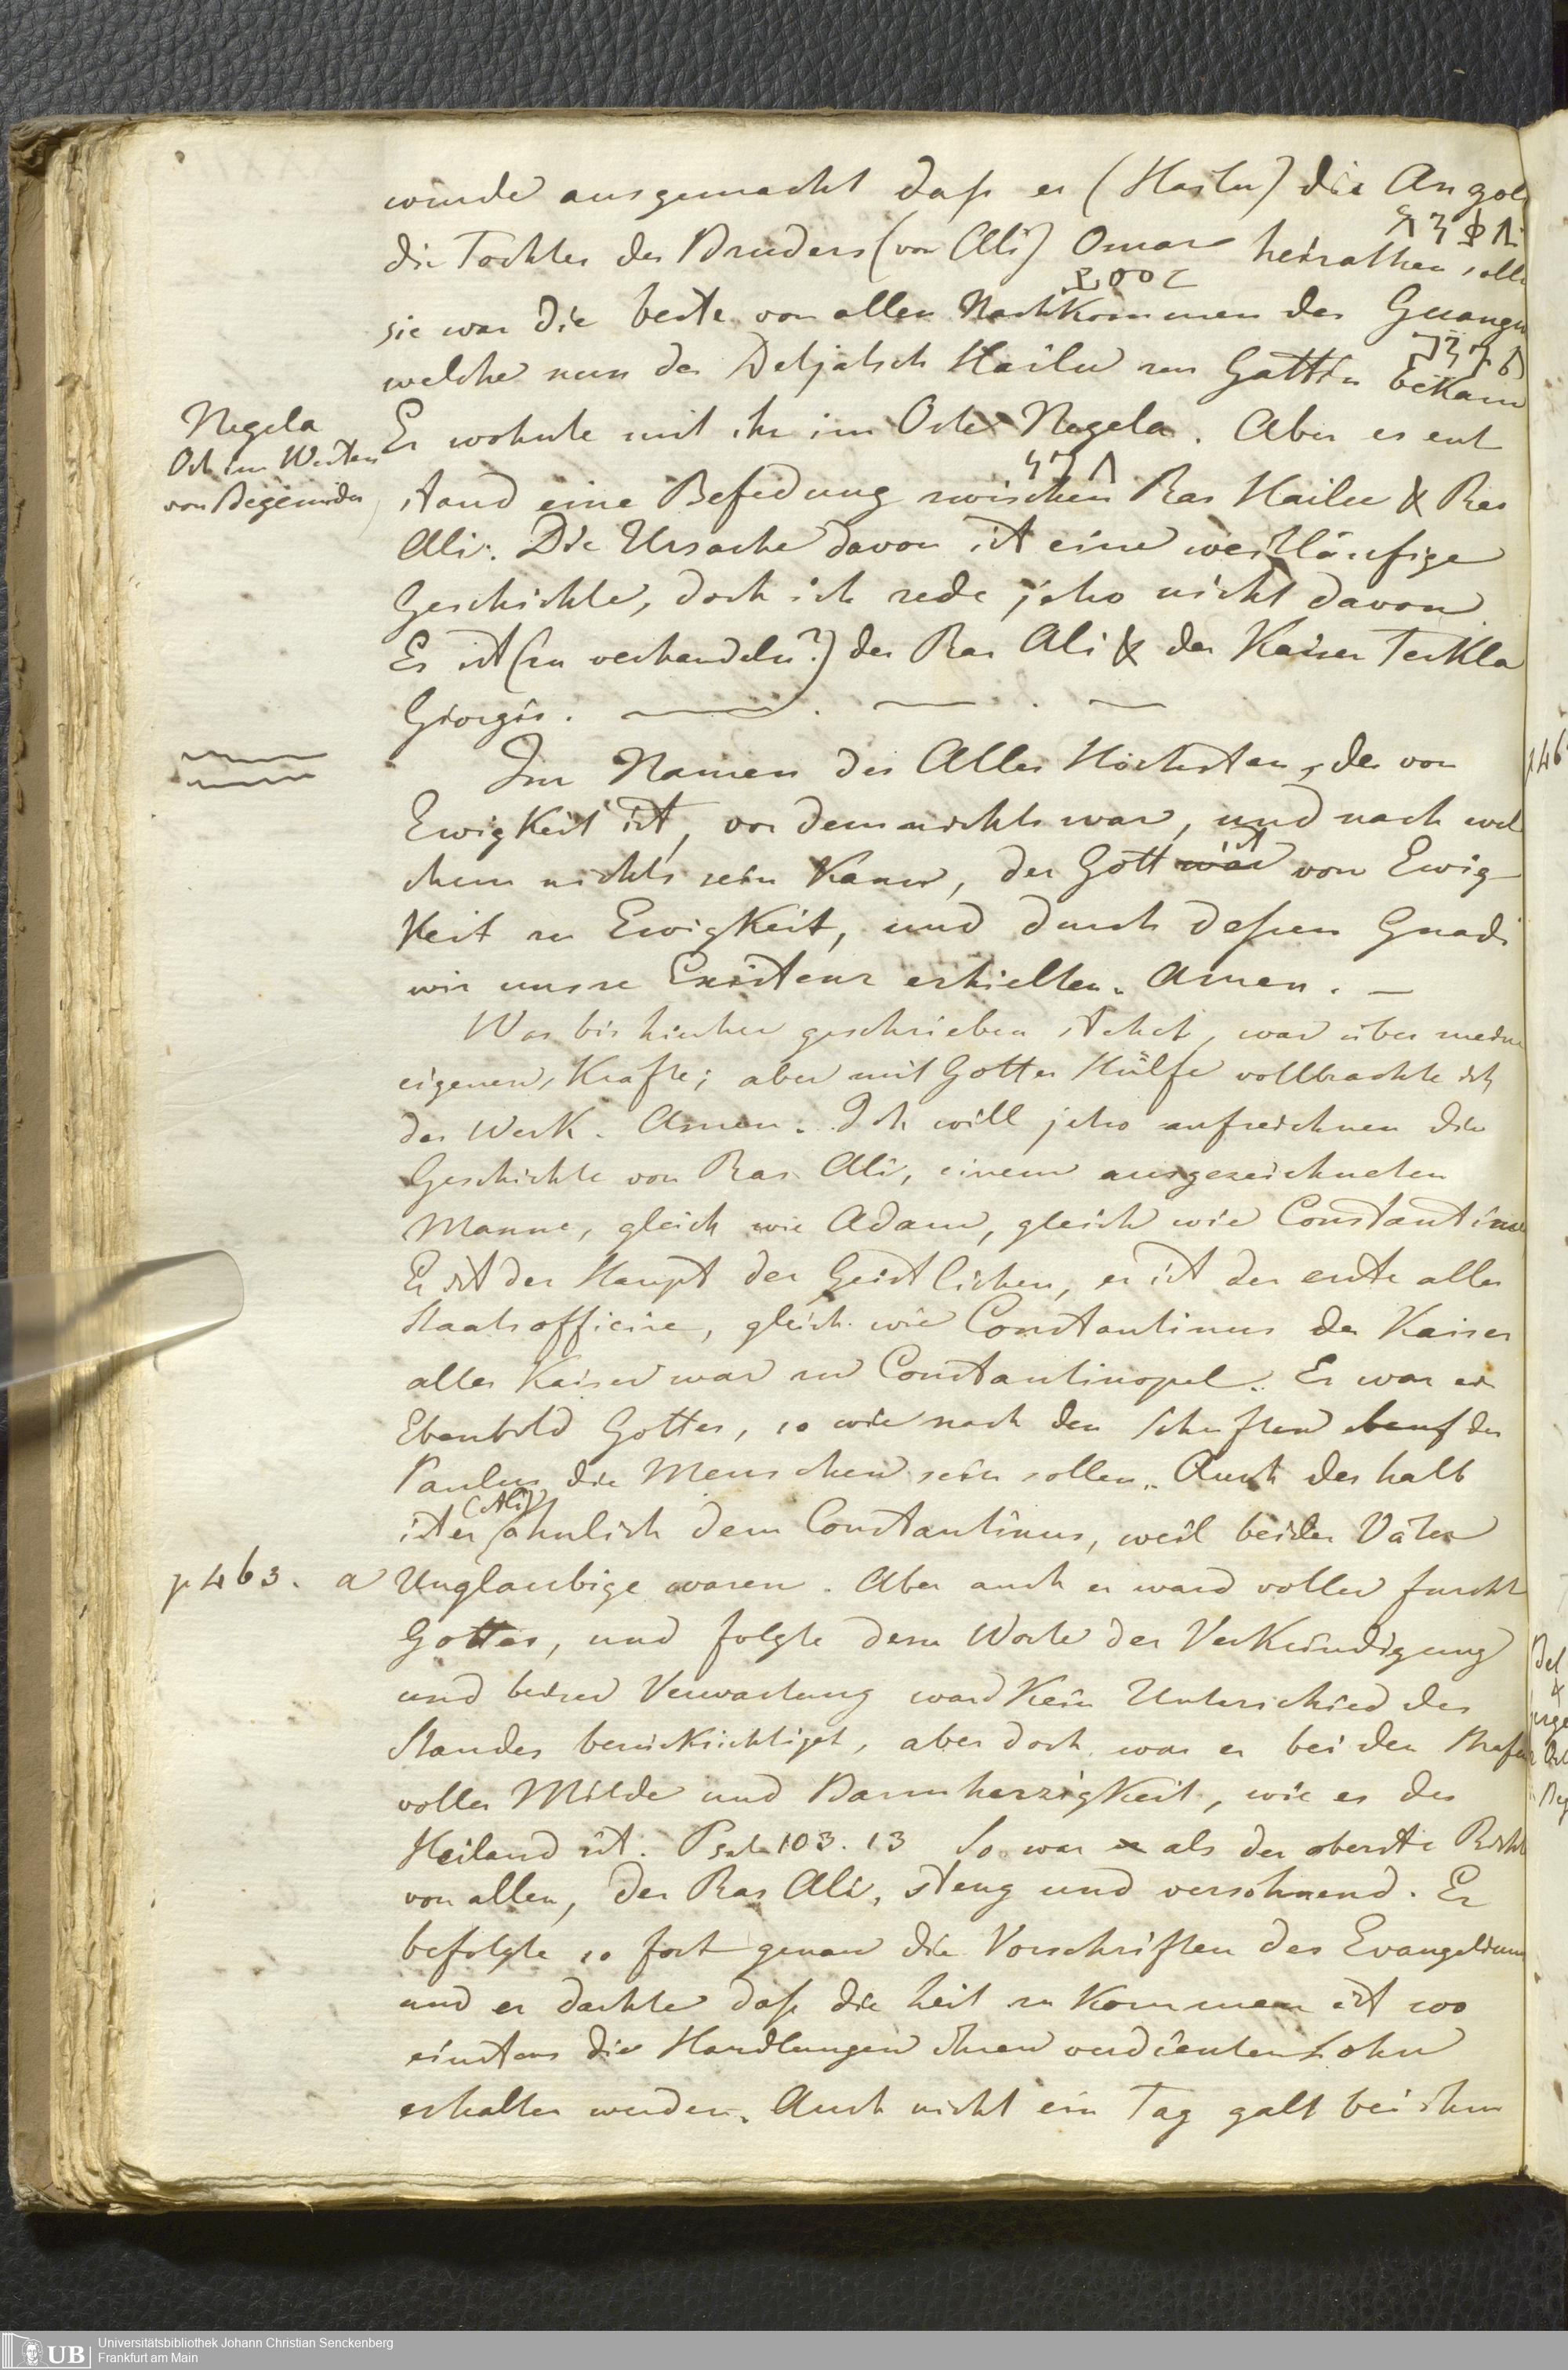 wurde ausgemacht daß er (Hailu) die An gol
die Tochter des Bruders (von Ali) Omar heirathen solle
sie war die beste von allen Nachkommen des Guangu
welche nun der Detjatsch Hailu zur Gattin bekam
Negela
Ort im Westen
von Begemder
Er wohnte mit ihr im Orte Negela. Aber es ent
ነጋላ
stand eine Befedung zwischen Ras Hailu & Ras
Ali. Die Ursache davon ist eine weitläufige
Geschichte, doch ich rede jetzo nicht davon
Es ist (zu verhandeln?) der Ras Ali & der Kaiser Teckla
Giorgis.
Im Namen des Aller Höchsten, der von
Ewigkeit ist, vor dem nichts war, und nach wel
chem nichts sein kann, der Gott war ist von Ewig
keit zu Ewigkeit, und durch deßen Gnade
wir unsre Existenz erhielten. Amen. —
Was bis hieher geschrieben stehet, war über meine
eigenen Kräfte; aber mit Gottes Hülfe vollbrachte ich
das Werk. Amen. Ich will jetzo aufzeichnen die
Geschichte von Ras Ali, einem ausgezeichneten
Manne, gleich wie Adam, gleich wie Constantinus
Er ist der Haupt der Geistlichen, er ist der erste aller
Staatsofficire, gleich wie Constantinus der Kaiser
aller Kaiser war zu Constantinopel. Er war ein
Ebenbild Gottes, so wie nach den Schriften des
Paulus die Menschen sein sollen. Auch deshalb
ist er (Ali) ähnlich dem Constantinus, weil beider Väter
p 463. a Unglaubige waren. Aber auch er ward voller furcht
Gottes, und folgte dem Worte der Verkündigung
und bei Verwaltung ward kein Unterschied des
Standes berücksichtiget, aber doch war er bei den Strafen
voller Milde und Barmherzigkeit, wie es der
Heiland ist. Psal. 103. 13 So war er als der oberste Richter
von allen, der Ras Ali, streng und versöhnend. Er
befolgte so fort genau die Vorschriften des Evangelium
und er dachte daß die Zeit zu kommen ist wo
einstens die Handlungen ihren verdienten Lohn
erhalten werden. Auch nicht ein Tag galt bei ihm
Universitätsbibliothek Johann Christian Senckenberg
Frankfurt am Main
UB